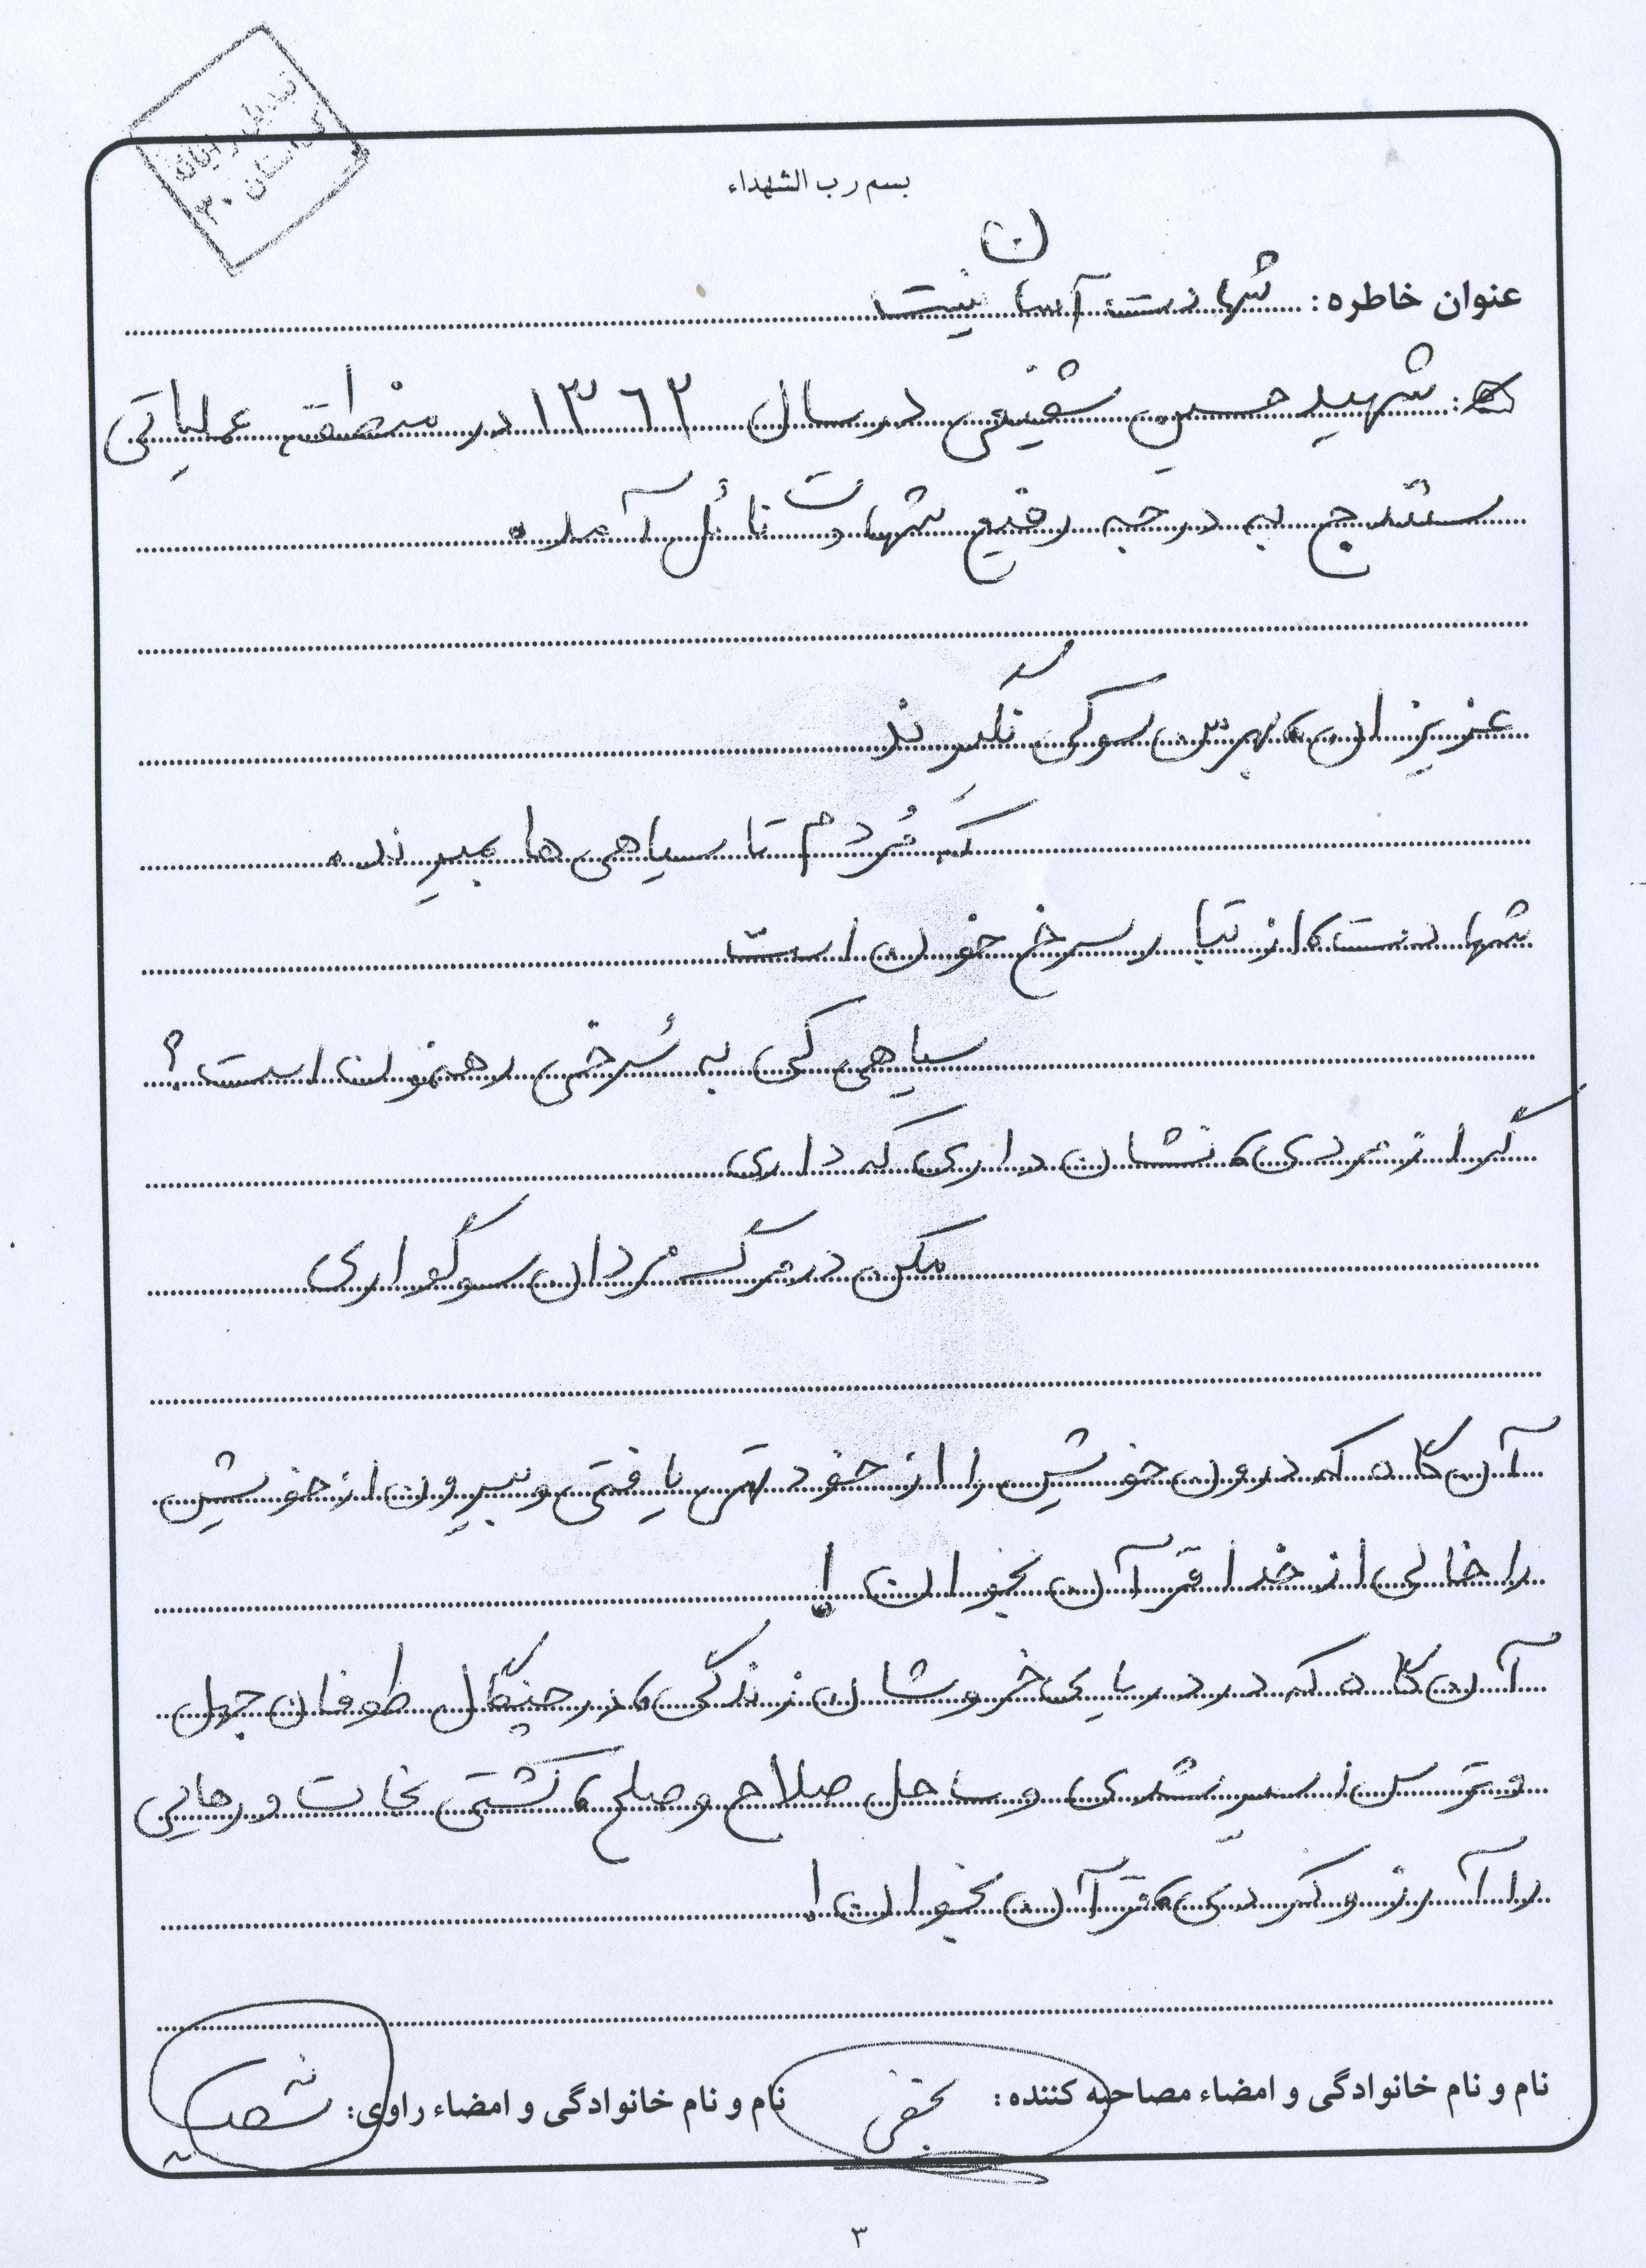 بسم رب الشهداء
عنوان خاطره: شهادت آسان نیست
شهید حسین شفیعی در سال ۱۳۶۲ در منطقه عملیاتی
سنندج به درجه رفیع شهادت نائل آمده
عزیزان، بهرتن سوکی نگیرند
که مُردم تا سیاهی ها بمیرند.
شهادت، از تبار سرخ خون است
سیاهی کی به سُرخی رهنمون است؟
گر از مردی، نشان داری که داری
مکن در مرگ مردان سوگواری
آن گاه که درون خویش را از خود تهی یافتی و بیرون از خویش
را خالی از خدا قرآن بخوان!
آن گاه که در دریای خروشان زندگی، در چنگال طوفان جهل
و ترس اسیر شدی و ساحل صلاح و صلح، کشتی نجات و رهایی
را آرزو کردی، قرآن بخوان!
نام و نام خانوادگی و امضاء مصاحبه کننده: نام و نام خانوادگی و امضاء راوی:
۳